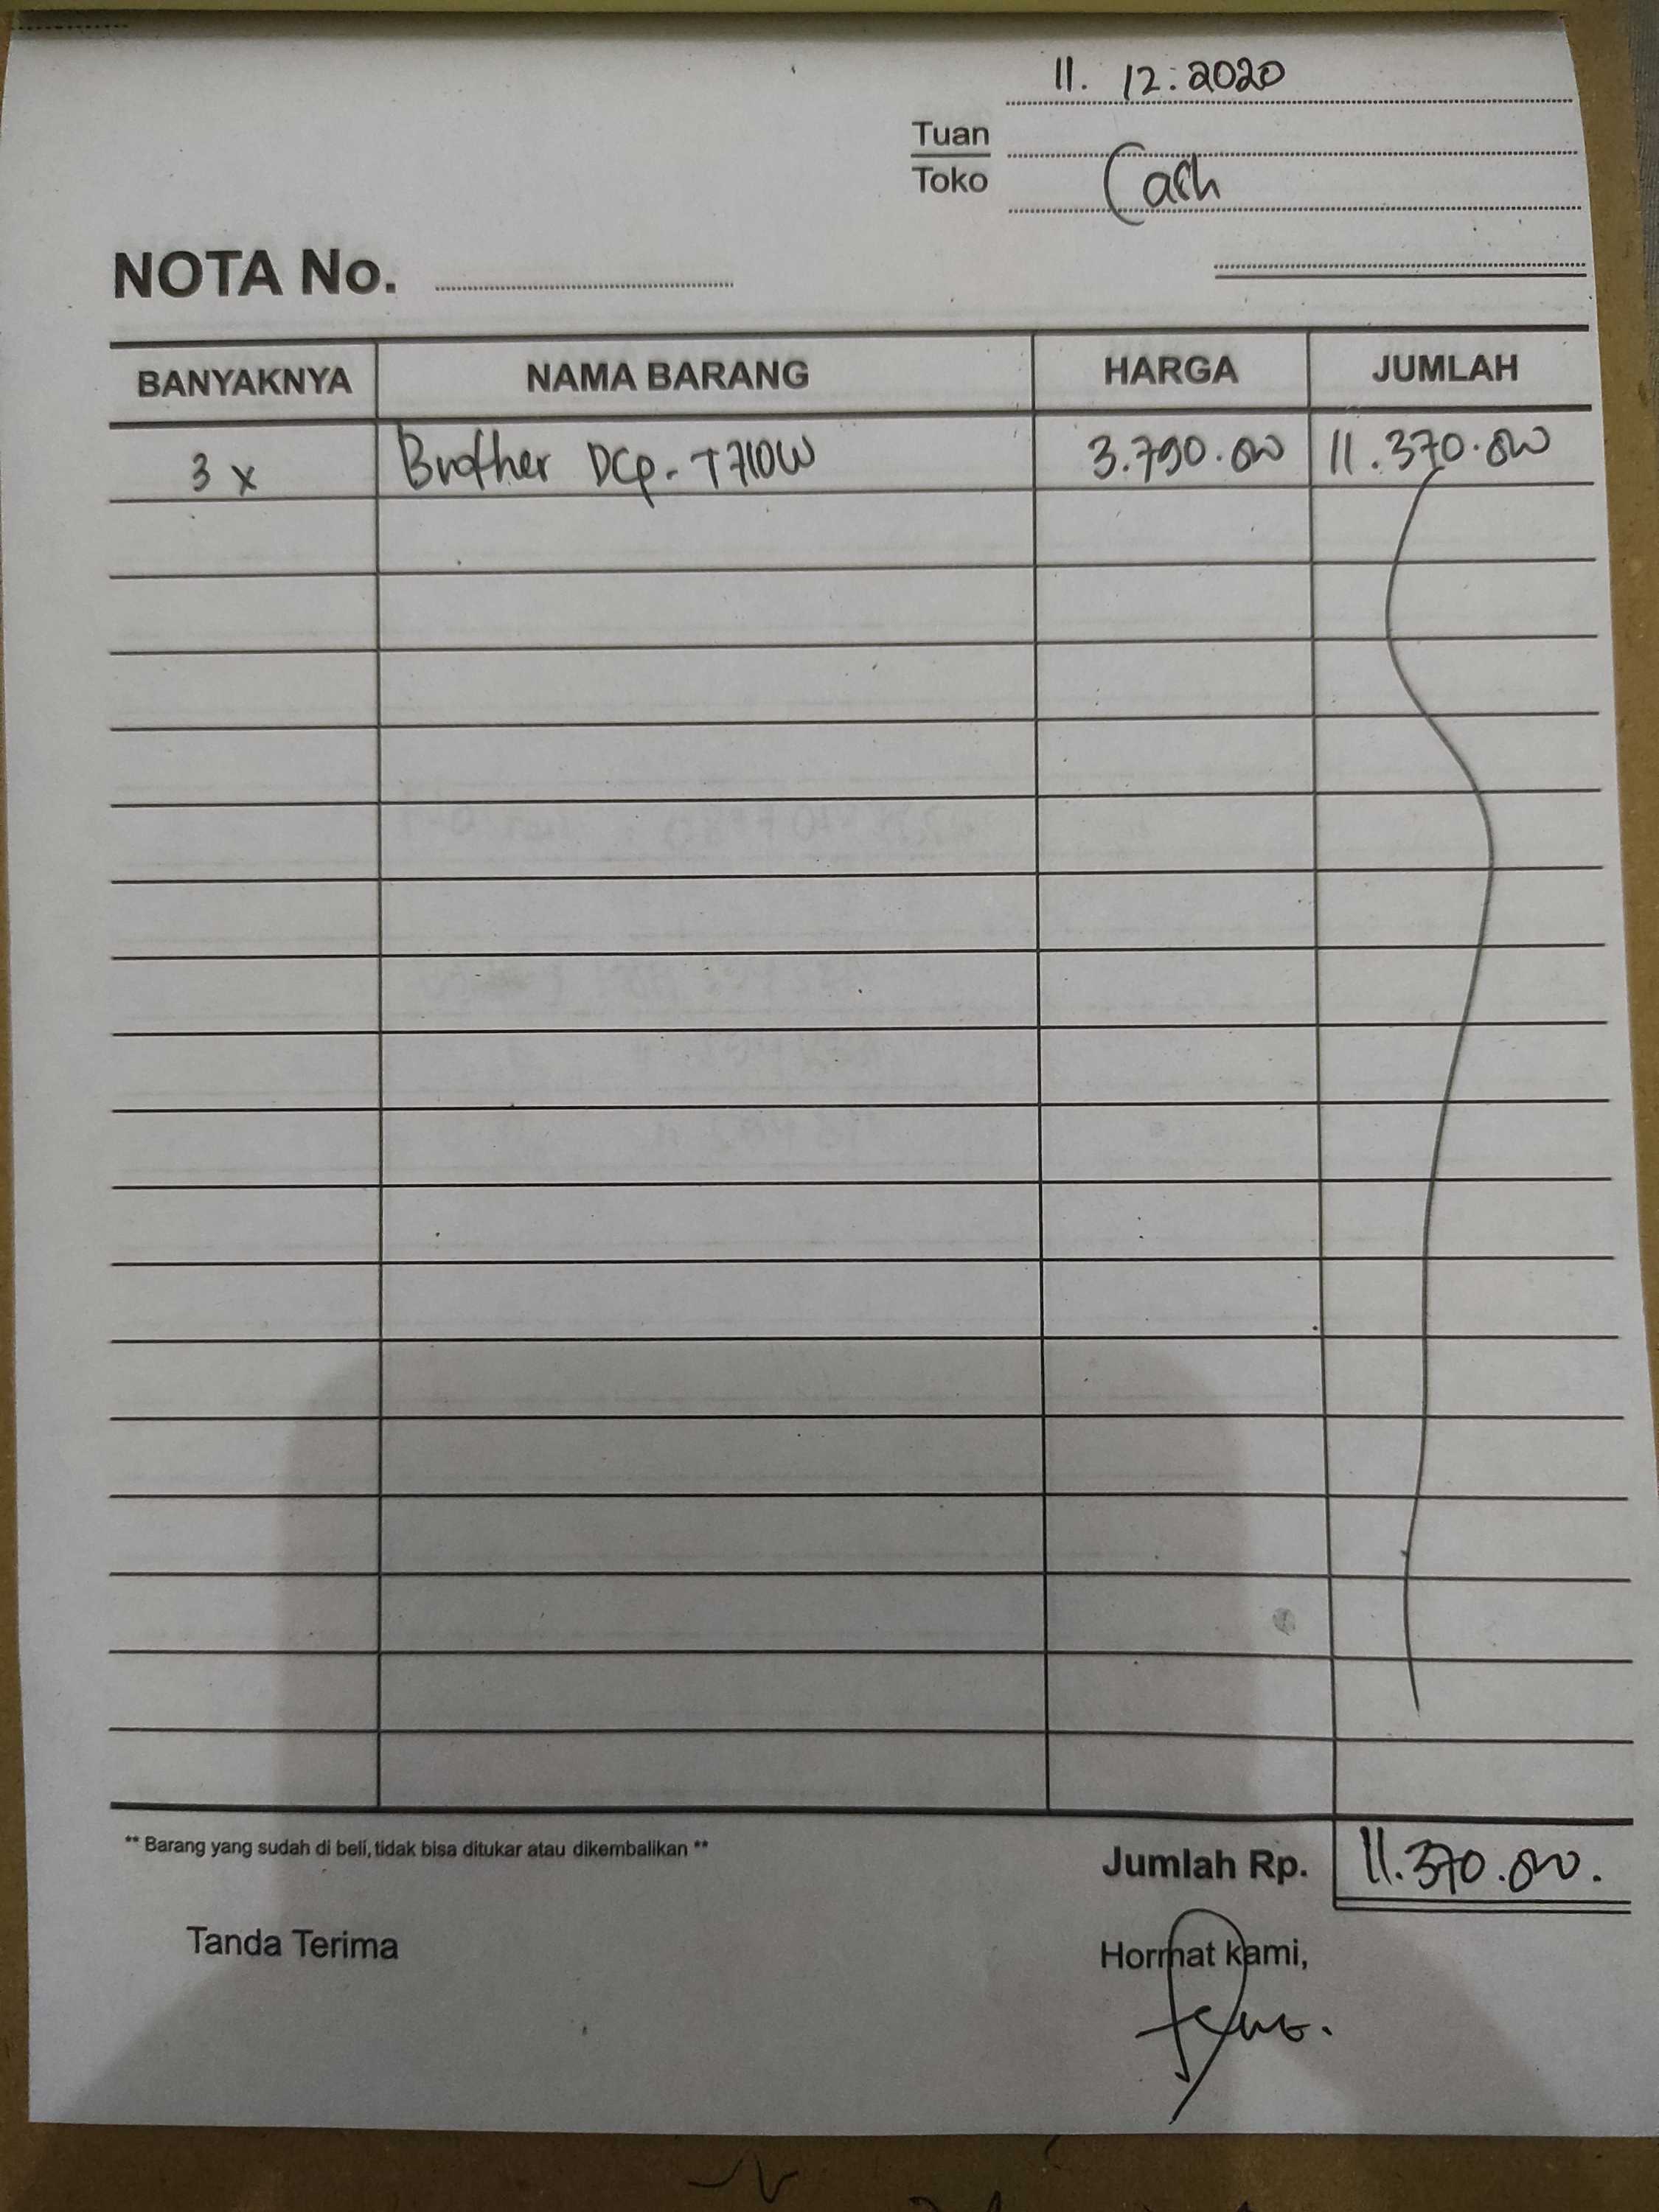 11. 12. 2020
Tuan
Toko
Cash
NOTA No.
BANYAKNYA NAMA BARANG HARGA JUMLAH
3 x Brother DCp-T710W 3.790.000 11.370.000
** Barang yang sudah di beli, tidak bisa ditukar atau dikembalikan **
Jumlah Rp. 11.370.000.
Tanda Terima
Hormat kami,